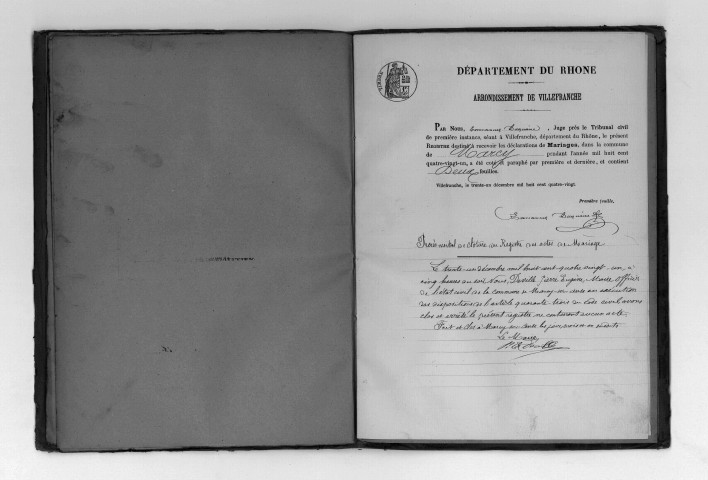 DÉPARTEMENT DU RHONE
ARRONDISSEMENT DE VILLEFRANCHE
PAR NOUS, Emmanuel , Juge près le Tribunal civil
de première instance, séant à Villefranche, département du Rhône, le présent
REGISTRE destiné à recevoir les déclarations de Mariages, dans la commune
de Marcy pendant l'année mil huit cent
quatre-vingt-un, a été coté & paraphé par première et dernière, et contient
Deux feuilles.
Villefranche, le trente-un décembre mil huit cent quatre-vingt.
Première feuille,
Emmanuel
Procès verbal de clôture du Registre des actes de Mariage
Le trente un décembre mil huit cent quatre vingt un, à
cinq heures du soir, Nous, Pierre Eugène, Maire, officier
de l'état civil de la commune de Marcy en exécution
des dispositions de l'article quarante trois du Code civil avons
clos et arrêté le présent registre ne contenant aucun acte.
Fait et clos à Marcy les jour, mois et an susdits
Le Maire